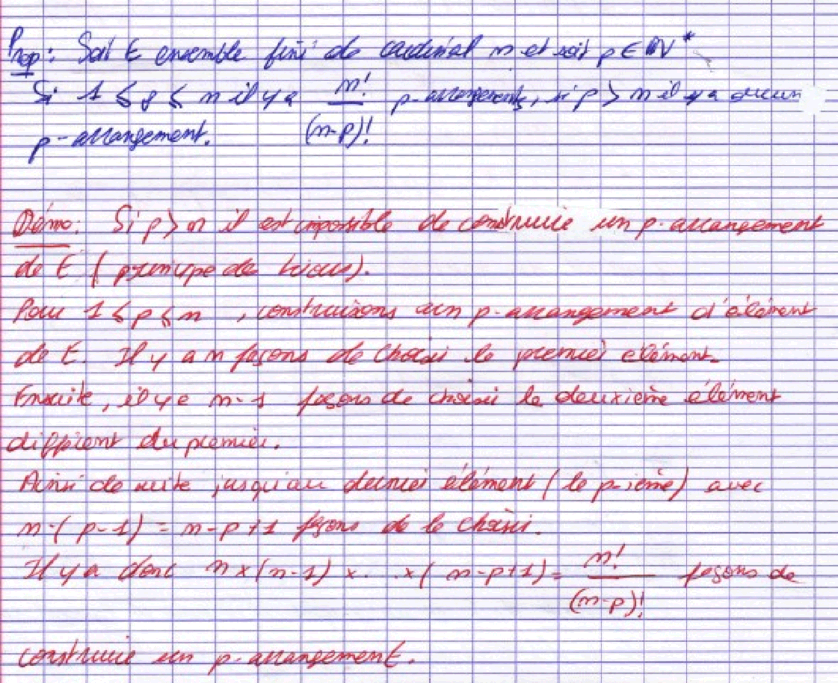 Prop: Soit E ensemble fini de cardinal n et soit p ∈ ℕ*
Si 1 ≤ p ≤ n il y a n!/(n-p)! p-arrangements, si p > n il y a aucun
p-arrangement.
Démo: Si p > n il est impossible de construire un p-arrangement
de E (principe des tiroirs).
Pour 1 ≤ p ≤ n, construisons un p-arrangement d'élément
de E. Il y a n façons de choisir le premier élément.
Ensuite, il y a n-1 façons de choisir le deuxième élément
différent du premier.
Ainsi de suite jusqu'au dernier élément (le p-ième) avec
n-(p-1) = n-p+1 façons de le choisir.
Il y a donc n×(n-1)×..×(n-p+1) = n!/(n-p)! façons de
construire un p-arrangement.